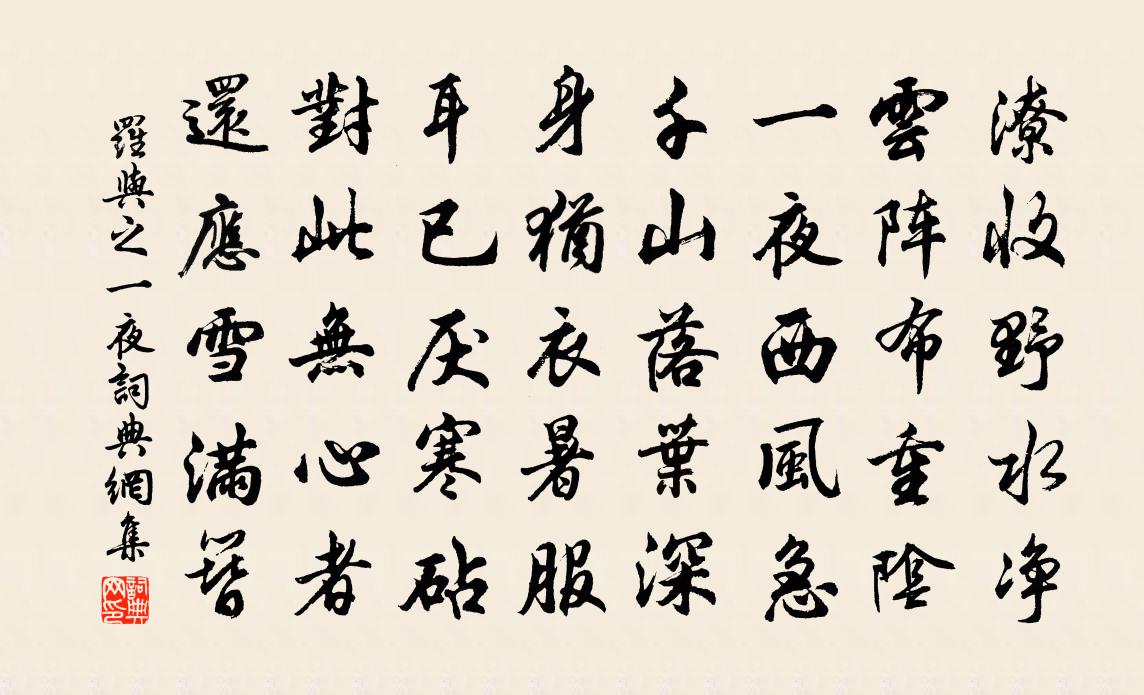 潦收野水净
雲阵布重陰
一夜西風急
千山落葉深
身猶衣暑服
耳已厌寒砧
對此無心者
還應雪滿簪
羅與之一夜詞典網集
詞典网印